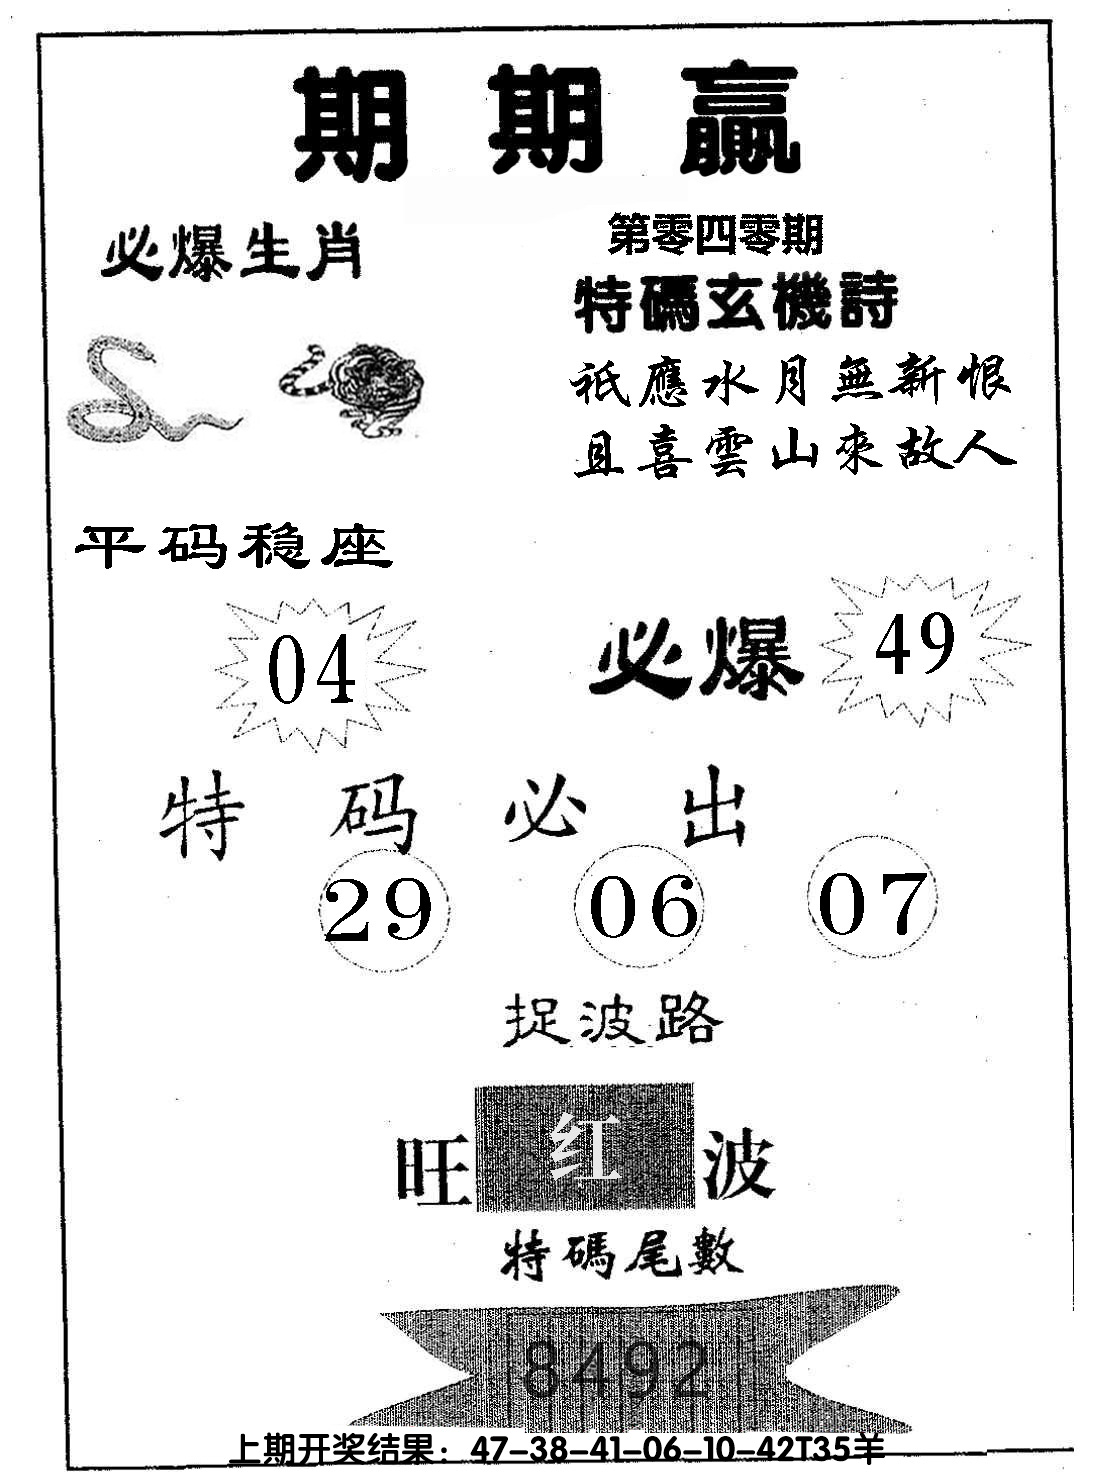 期期赢
必爆生肖
第零四零期
特碼玄機詩
祇應水月無新恨
且喜雲山來故人
平码稳座
04
必爆
49
特码必出
29 06 07
捉波路
旺红波
特碼尾數
8492
上期开奖结果：47-38-41-06-10-42T35羊